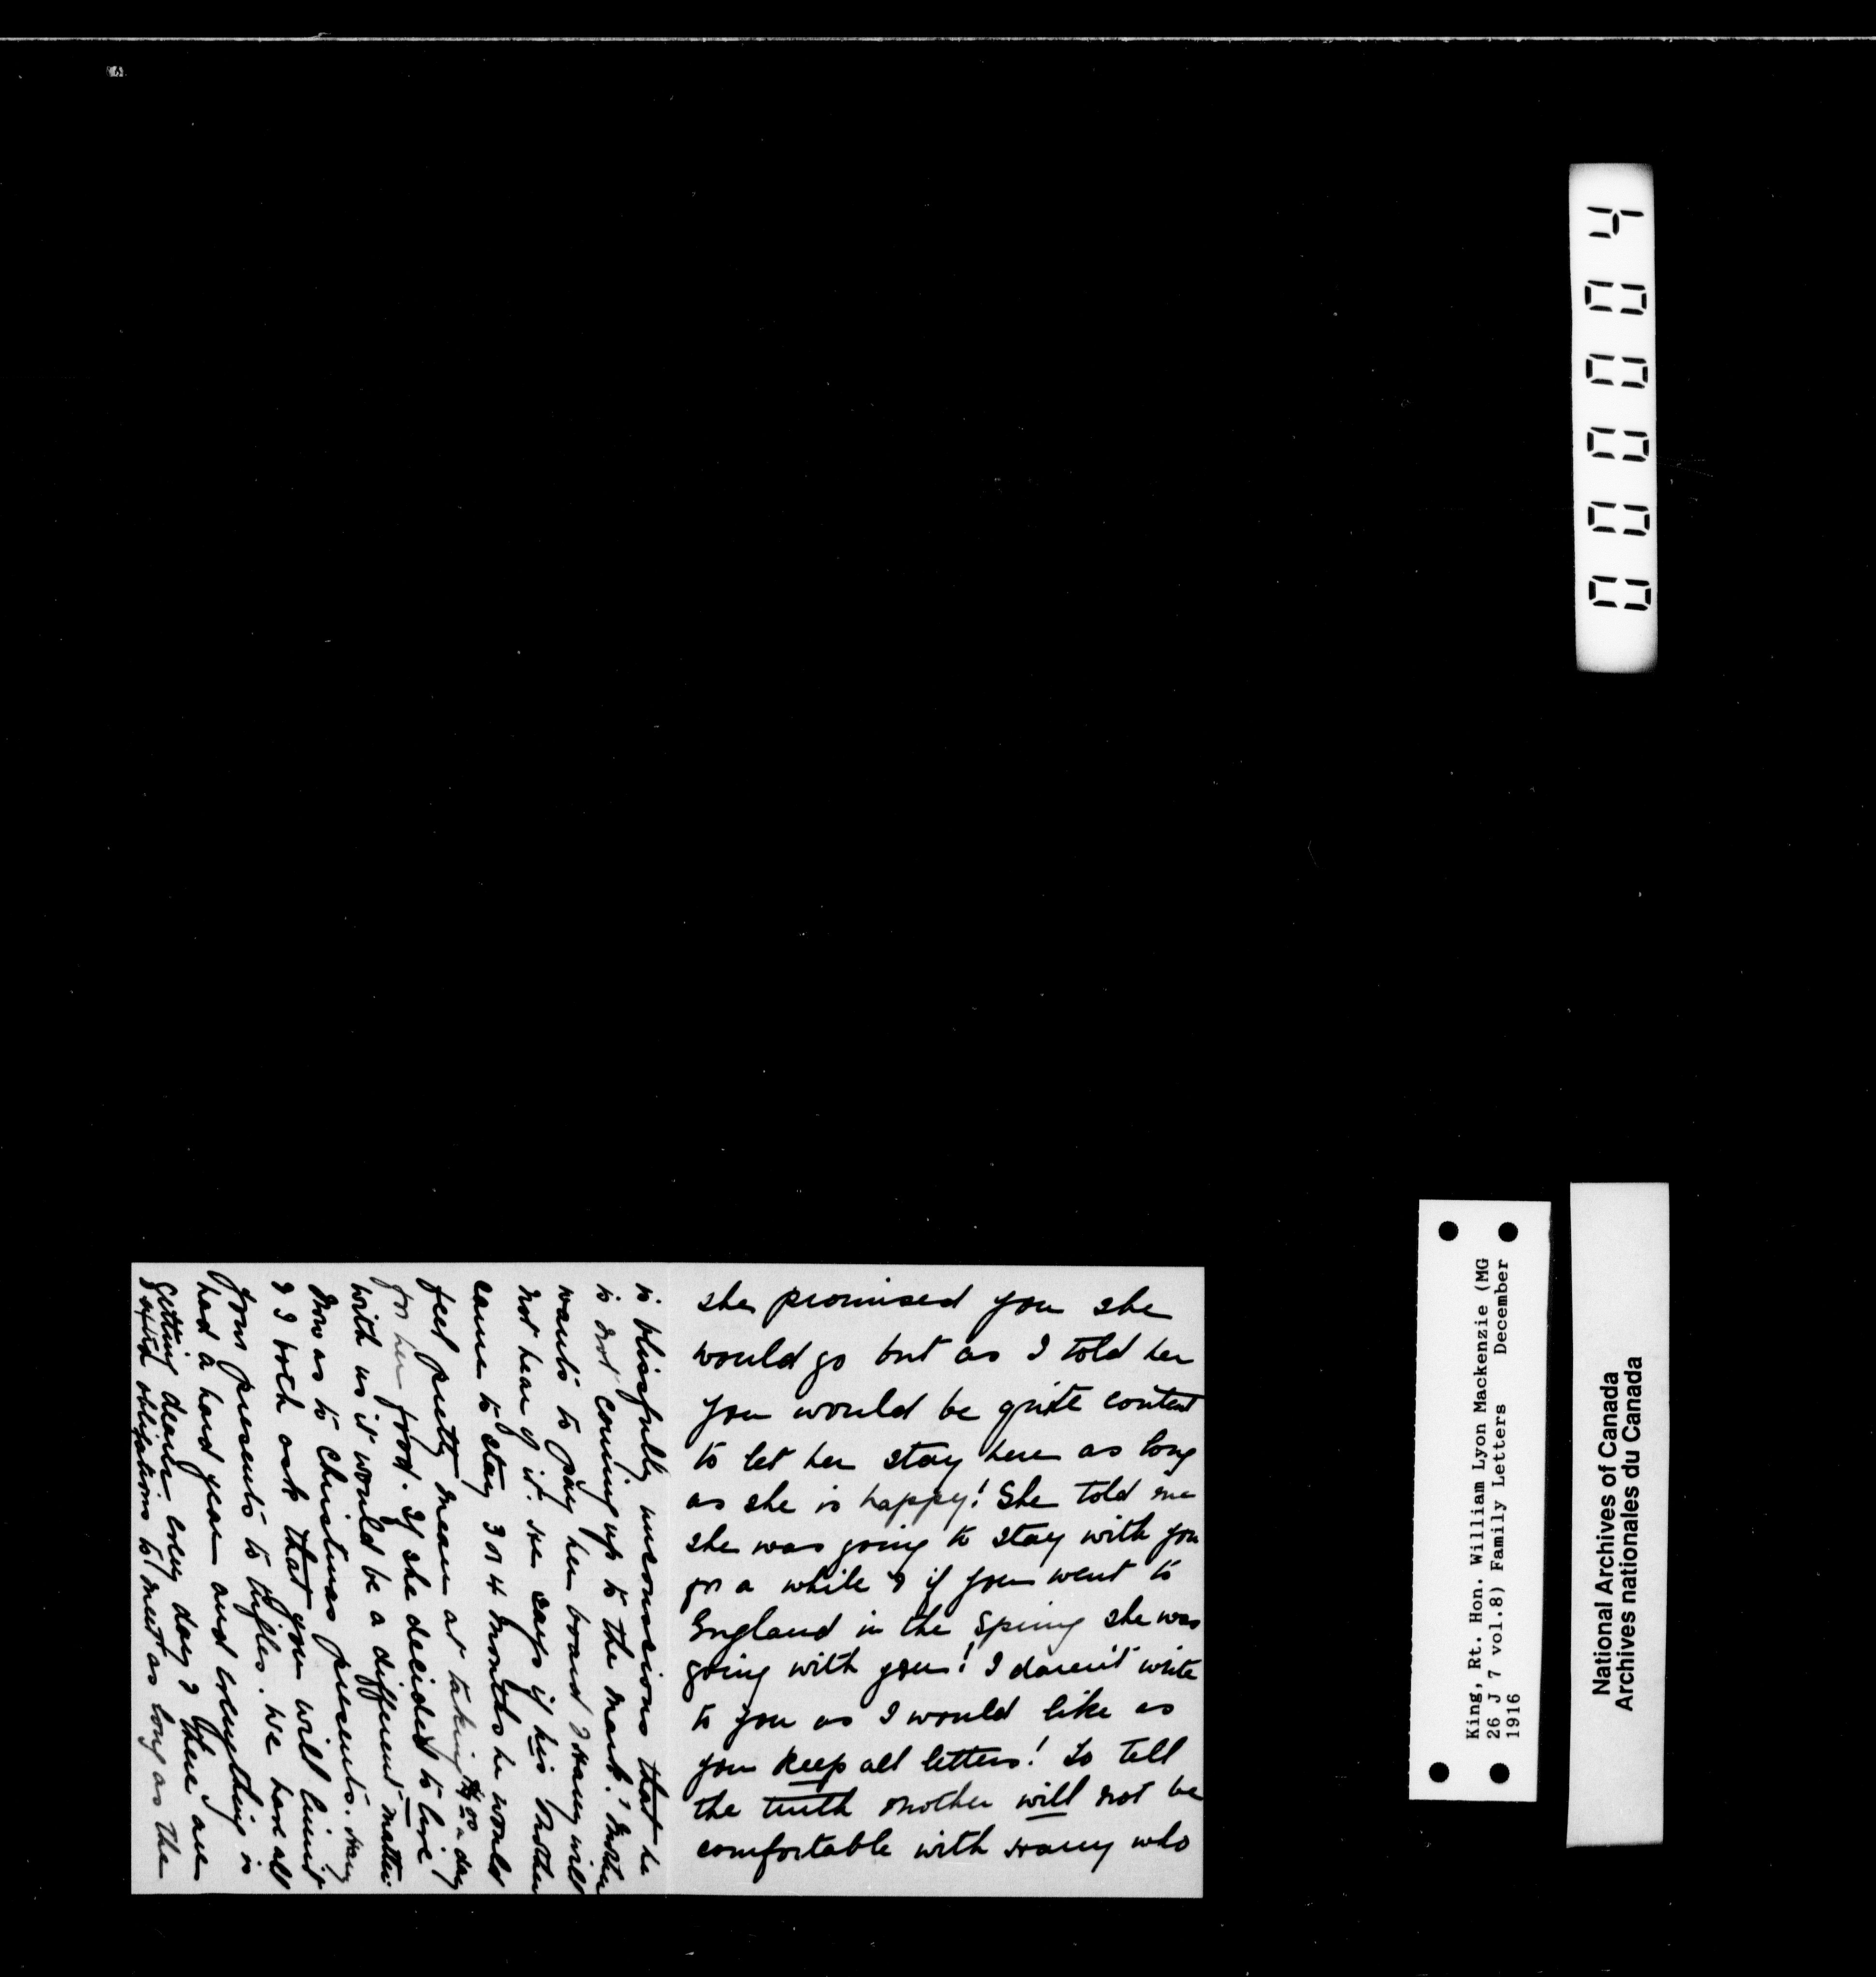 she promised you she
would go but as I told her
you would be quite content
to let her stay here as long
as she is happy! She told me
she was going to stay with you
for a while & if you went to
England in the spring she was
going with you! I daren't write
to you as I would like as
you keep all letters! To tell
the truth Mother will not be
comfortable with Harry who
is blissfully unconscious that he
is not coming up to the mark! Mother
wants to pay her board & Harry will
not hear of it. He says if his Mother
came to stay 3 or 4 months he would
feel pretty mean at taking $1.00 a day
for her food. If she decided to live
with us it would be a different matter
Now as to Christmas presents. Harry
& I both ask that you will limit
your presents to trifles. We have all
had a hard year and everything is
getting dearer every day & there are
obligations to meet as long as the
King, Rt. Hon. William Lyon Mackenzie (MG
26 J 7 vol.8) Family Letters December
1916
National Archives of Canada
Archives nationales du Canada
000004